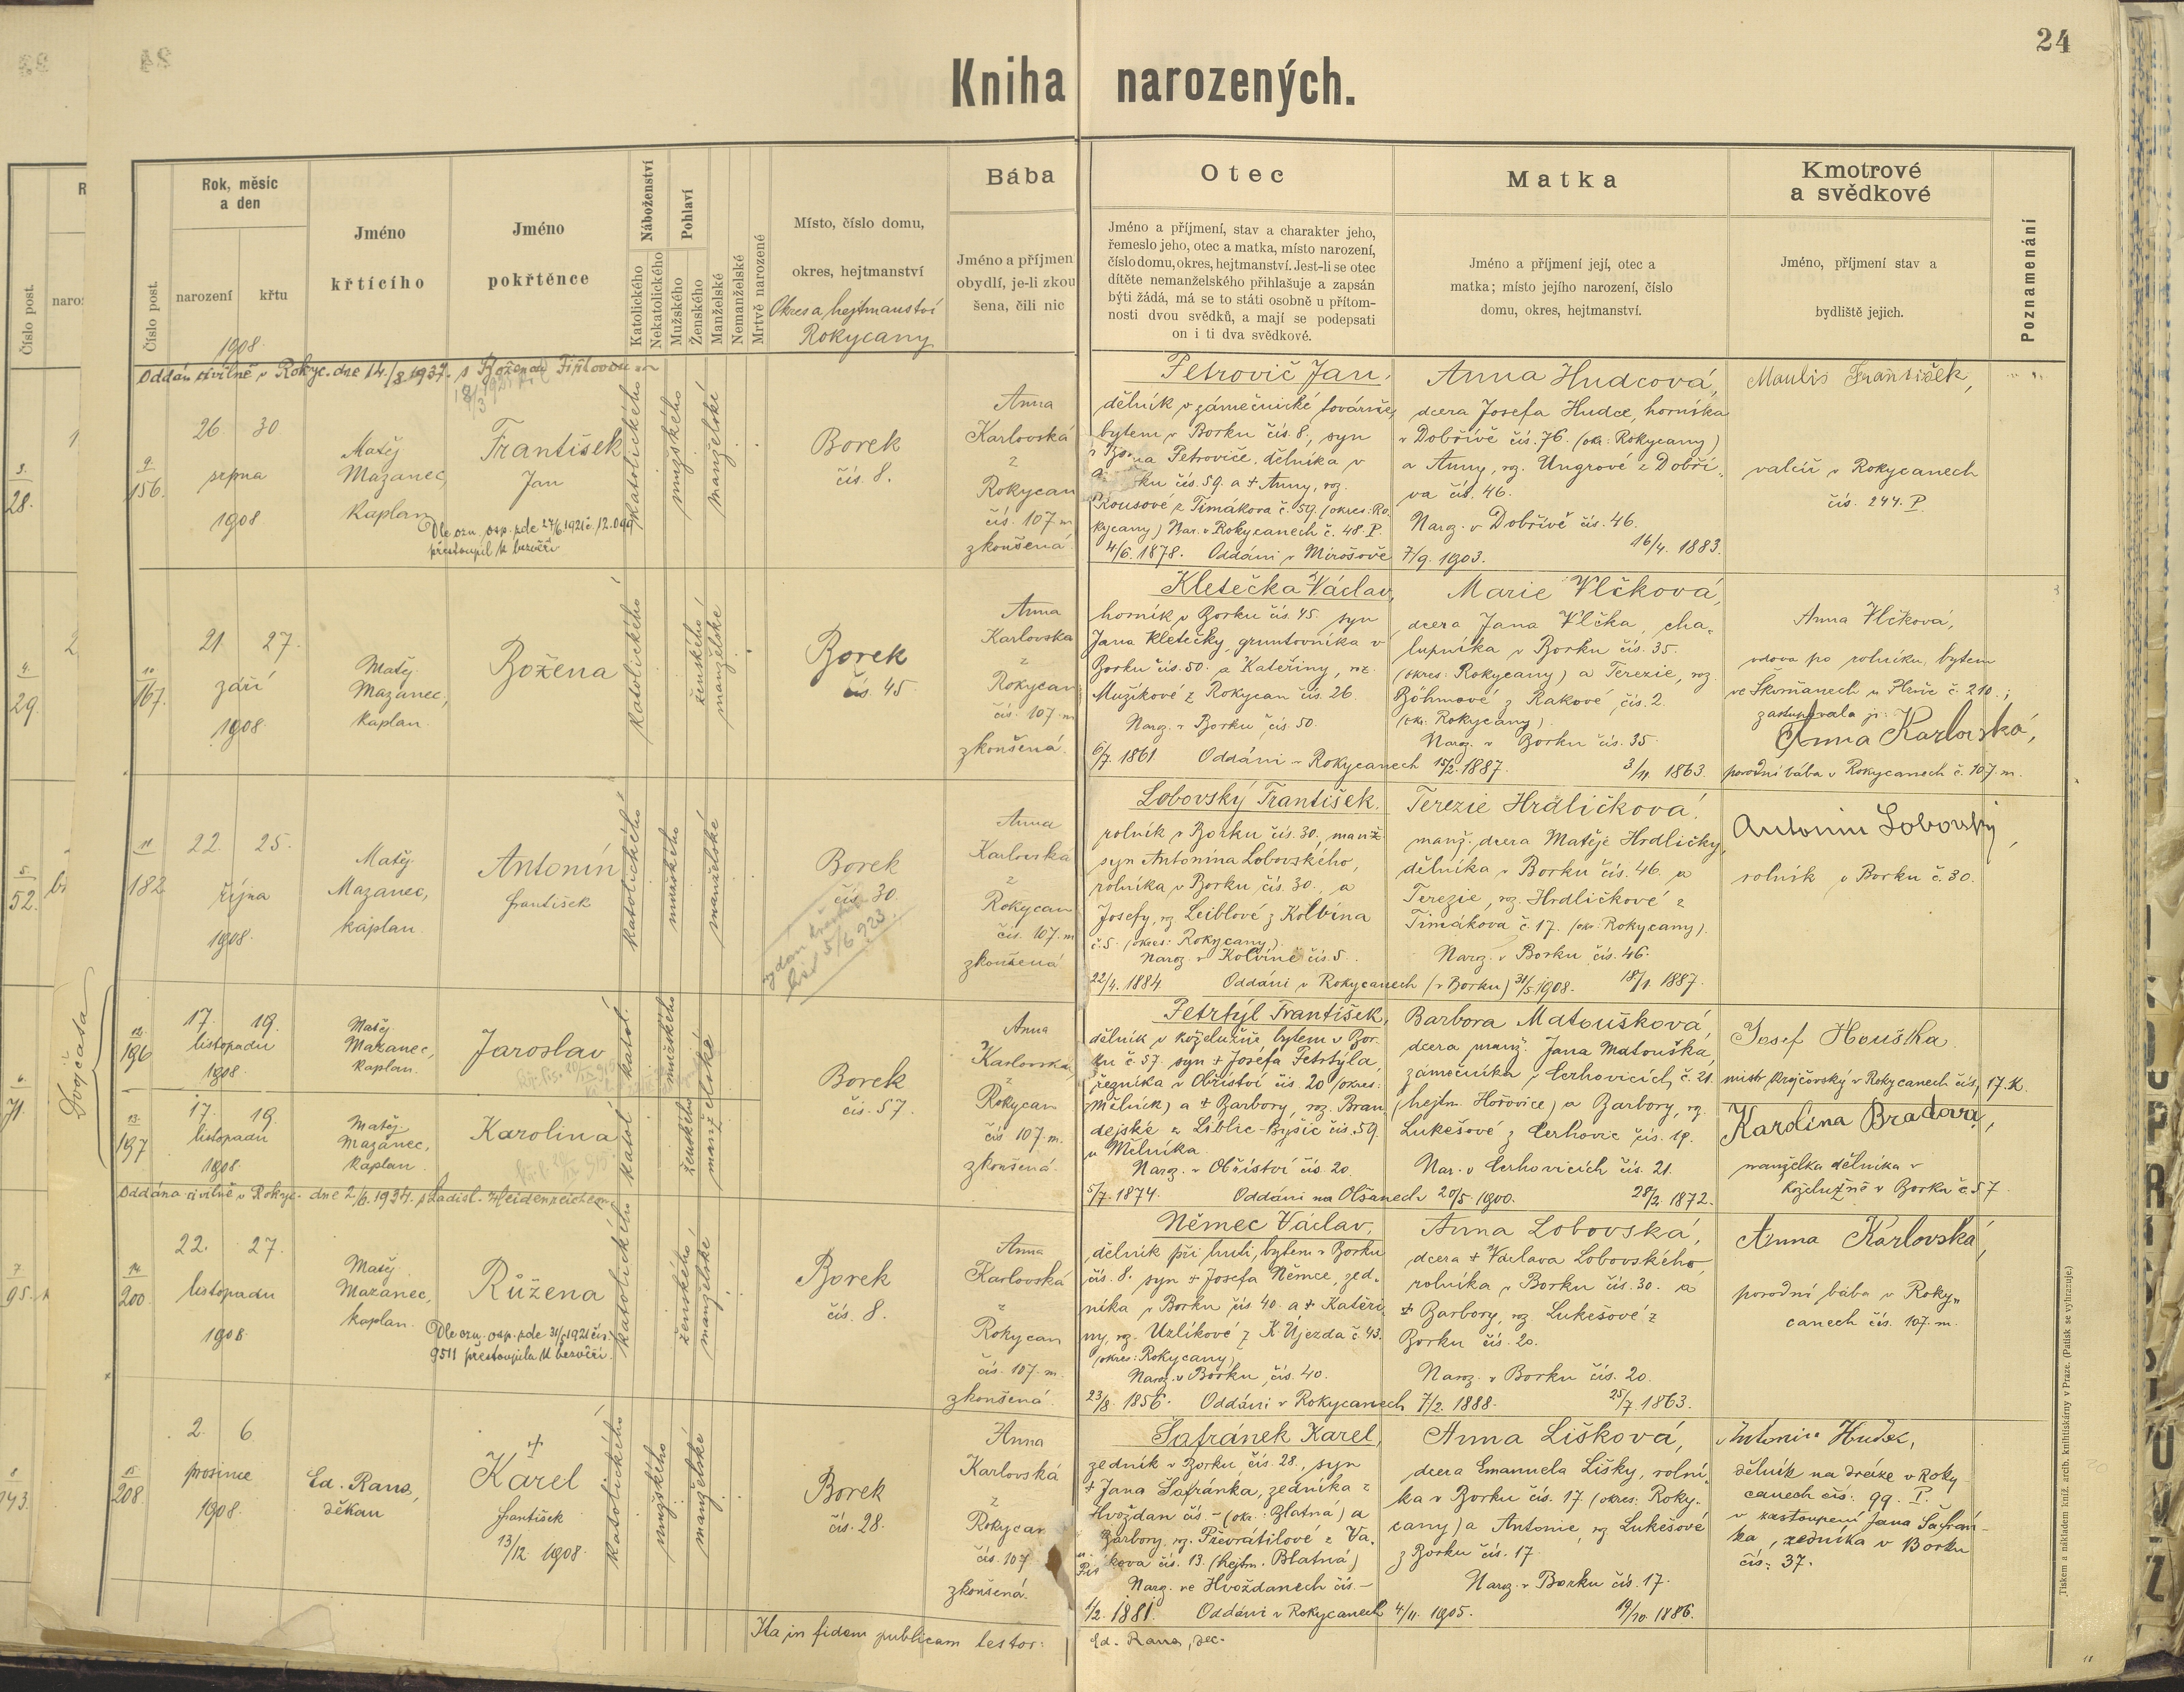 24
Kniha narozených.
Číslo post.
Rok, měsíc
a den
narození
křtu
1908
Jméno
křtícího
Jméno
pokřtěnce
Náboženství
Katolického
Nekatolického
Pohlaví
Mužského
Ženského
Manželské
Nemanželské
Mrtvě narozené
Místo, číslo domu,
okres, hejtmanství
Okres a hejtmanství
Rokycany
Bába
Jméno a příjmen
obydlí, je-li zkou
šena, čili nic
Otec
Jméno a příjmení, stav a charakter jeho,
řemeslo jeho, otec a matka, místo narození,
číslo domu, okres, hejtmanství. Jest-li se otec
dítěte nemanželského přihlašuje a zapsán
býti žádá, má se to státi osobně u přítom-
nosti dvou svědků, a mají se podepsati
on i ti dva svědkové.
Matka
Jméno a příjmení její, otec a
matka; místo jejího narození, číslo
domu, okres, hejtmanství.
Kmotrové
a svědkové
Jméno, příjmení stav a
bydliště jejich.
Poznamenání
Oddán civilně v Rokyc. dne 14./8 1937. s Boženou
9
156.
26 30
srpna
1908
Matěj
Mazanec,
kaplan
František
Jan
Dle ozn. osp. zde 27/6 1921 č. 12.099
přestoupil k bezvěří
katolického
mužského
manželské
Borek
čís. 8.
Anna
Karlovská
z
Rokycan
čís. 107 m
zkoušená
Petrovič Jan,
dělník v zámečnické továrně,
bytem v Borku čís. 8., syn
Petroviče, dělníka v
ku čís. 59. a + Anny, roz.
Rousové z Timákova č. 59. (okres: Ro
kycany) Nar. v Rokycanech č. 48. P.
4/6. 1878. Oddáni v Mirošově 7/9. 1903.
Anna Hudcová,
dcera Josefa Hudce, horníka
v Dobřívě čís. 76. (okr: Rokycany)
a Anny, roz. Ungrové z Dobří-
va čís. 46.
Naroz. v Dobřívě čís. 46.
16/4. 1883.
Maulis František,
valcíř v Rokycanech
čís. 244. P.
10
167.
21 27.
září
1908
Matěj
Mazanec,
kaplan.
Božena
katolického
ženského
manželské
Borek
čís. 45
Anna
Karlovska
z
Rokycan
čís. 107 m
zkoušená.
Kletečka Václav,
horník v Borku čís. 45. syn
Jana Kletečky, gruntovníka v
Borku čís. 50. a Kateřiny, roz.
Mužíkové z Rokycan čís. 26.
Naroz. v Borku čís. 50.
6/7. 1861 Oddáni v Rokycanech 15/2. 1887.
Marie Vlčková,
dcera Jana Vlčka, cha-
lupníka v Borku čís. 35.
(okres: Rokycany) a Terezie, roz.
Böhmové z Rakové čís. 2.
(okr: Rokycany).
Naroz. v Borku čís. 35.
3/11 1863.
Anna Vlčková,
vdova po rolníku, bytem
ve Skvrňanech u Plzně č. 210.;
zastupovala ji:
Anna Karlovská,
porodní bába v Rokycanech č. 107. m.
11
182
22. 25.
října
1908.
Matěj
Mazanec,
kaplan.
Antonín
František
katolického
mužského
manželské
Borek
čís. 30
vydán křestní
list 5/6 923.
Anna
Karlovská
z
Rokycan
čís. 107. m
zkoušená
Lobovský František,
rolník v Borku čís. 30. manž.
syn Antonína Lobovského,
rolníka v Borku čís. 30., a
Josefy, roz. Leiblové z Kolvína
č. 5. (okres: Rokycany).
Naroz. v Kolvíně čís. 5.
22/4. 1884 Oddáni v Rokycanech (v Borku) 31/5. 1908.
Terezie Hrdličková,
manž. dcera Matěje Hrdličky,
dělníka v Borku čís. 46. a
Terezie, roz. Hrdličkové z
Timákova č. 17. (okr: Rokycany).
Naroz. v Borku čís. 46.
18/1 1887.
Antonín Lobovský,
rolník v Borku č. 30.
Dvojčata
12
196
17. 19.
listopadu
1908.
Matěj
Mazanec,
kaplan.
Jaroslav
katol.
mužského
manželské
13
197
17. 19.
listopadu
1908.
Matěj
Mazanec,
kaplan.
Karolina
katol
ženského
Borek
čís. 57.
Anna
Karlovská,
z
Rokycan
čís 107. m.
zkoušená.
Petrtýl František,
dělník v koželužně, bytem v Bor-
ku č. 57. syn + Josefa Petrtýla,
řezníka v Obříství čís. 20 (okres:
Mělník) a + Barbory, roz. Bran
dejské z Liblic-Byšic čís. 59.
u Mělníka.
Naroz. v Obříství čís. 20
5/7. 1874. Oddáni na Olšanech 20/5. 1900.
Barbora Matoušková,
dcera manž. Jana Matouška,
zámečníka v Cerhovicích, č. 21.
(hejtm. Hořovice) a Barbory, roz.
Lukešové z Cerhovic čís. 19.
Nar. v Cerhovicích čís. 21.
28/2. 1872.
Josef Houška
mistr krejčovský v Rokycanech čís. 17. K.
Karolina Bradová,
manželka dělníka v
koželužně v Borku č. 57.
Oddána civilně v Rokyc. dne 2/6. 1934. s Ladisl. Heidenreichem
14
200.
22. 27.
listopadu
1908.
Matěj
Mazanec,
kaplan.
Růžena
Dle ozn. osp. zde 31/5 1921 čís.
9511 přestoupila k bezvěří.
katolického
ženského
manželské
Borek
čís. 8.
Anna
Karlovská
z
Rokycan
čís. 107. m.
zkoušená.
Němec Václav,
dělník při huti, bytem v Borku
čís. 8. syn + Josefa Němce, zed-
níka v Borku čís 40. a + Kateři
ny, roz. Uzlíkové z K. Újezda č. 43.
(okres: Rokycany)
Naroz. v Borku, čís. 40.
23/8. 1856. Oddáni v Rokycanech 7/2. 1888.
Anna Lobovská,
dcera + Václava Lobovského,
rolníka v Borku čís. 30. a
+ Barbory, roz. Lukešové z
Borku čís. 20.
Naroz. v Borku čís. 20.
25/7. 1863.
Anna Karlovská,
porodní bába v Roky-
canech čís. 107. m.
15
208.
2. 6.
prosince
1908.
Ed. Rana,
děkan
+
Karel
František
13/12. 1908.
katolického
mužského
manželské
Borek
čís. 28.
Anna
Karlovská
z
Rokycan
čís. 107
zkoušená.
Šafránek Karel,
zedník v Borku čís. 28., syn
+ Jana Šafránka, zedníka z
Hvoždan čís. – (okr.: Blatná) a
Barbory, roz. Převrátilové z Va-
kova čís. 13. (hejtm. Blatná)
Naroz. ve Hvoždanech čís. –
1/2. 1881. Oddáni v Rokycanech 4/11. 1905.
Anna Lišková,
dcera Emanuela Lišky, rolní-
ka v Borku čís. 17. (okres: Roky-
cany) a Antonie, roz. Lukešové
z Borku čís. 17.
Naroz. v Borku čís. 17.
19/10. 1886.
Antonín Hudec,
dělník na dráze v Roky-
canech čís. 99. I.
v zastoupení Jana Šafrán-
ka, zedníka v Borku
čís. 37.
Ita in fidem publicam testor:
Ed. Rana, dec.
Tiskem a nákladem kníž. arcib. knihtiskárny v Praze. (Patisk se vyhrazuje.)